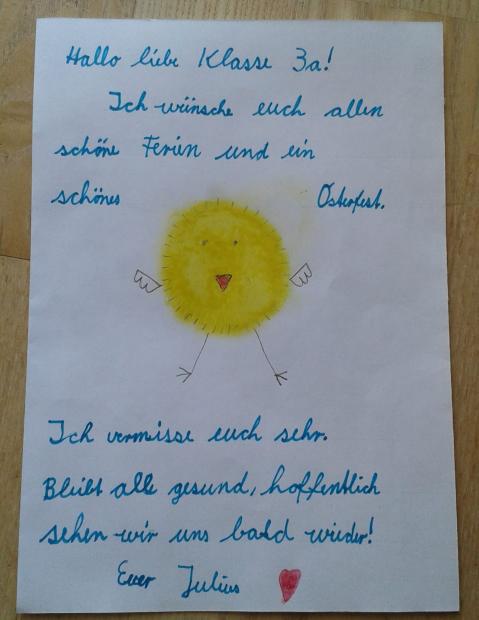 Hallo liebe Klasse 3a!
Ich wünsche euch allen
schöne Ferien und ein
schönes Osterfest.
Ich vermisse euch sehr.
Bleibt alle gesund, hoffentlich
sehen wir uns bald wieder!
Euer Julius